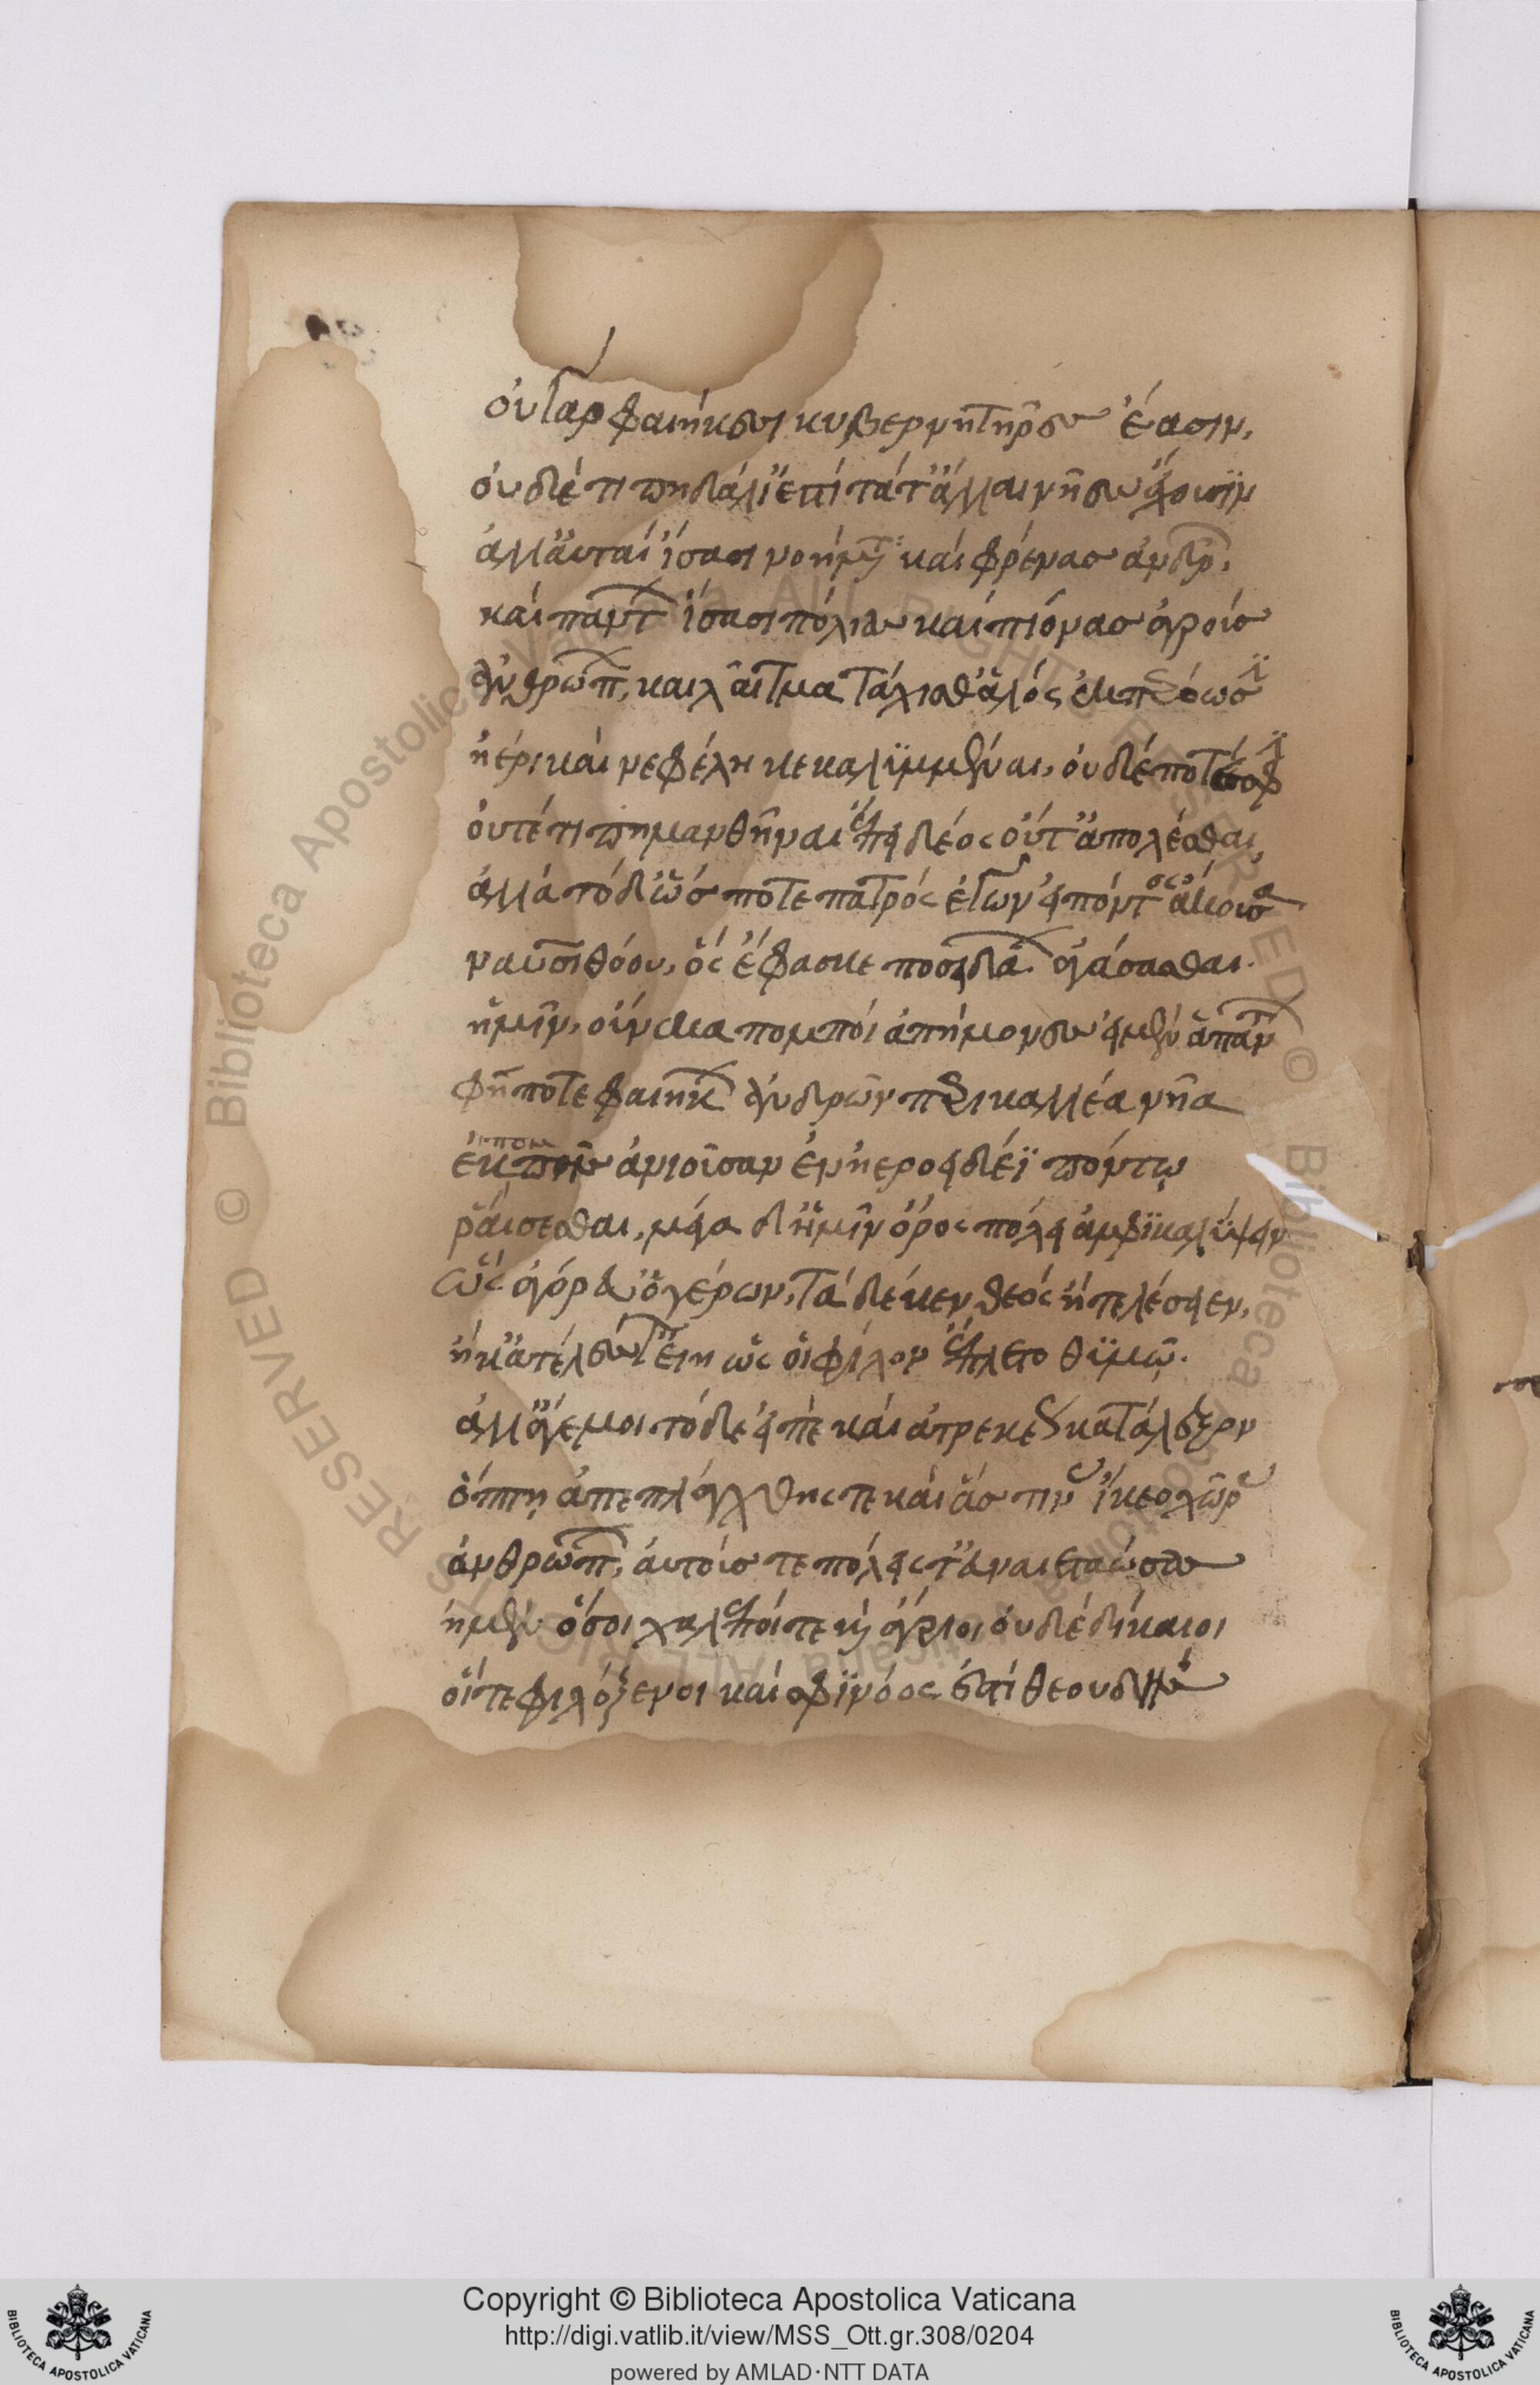 ὀυ γὰρ φαιήκεσσι κυβερνητῆρες ἔασιν,
ὀυδέ τι πηδάλϊ' ἐπὶ τάτ' ἄλλαι νῆες ἔχουσϊν
ἀλλ' ἀυταὶ ἴσασι νοήμτ καὶ φρένας ἀνδρ,
καὶ παντ ἴσασι πόλιας καὶ πίονας ἀγροὺς
ἀνθρώπ, καὶ λαῖτμα τάχισθ' ἁλὸς ἐκπερόωσϊ
ἠέρι καὶ νεφέλη κεκαλϋμμέναι, ὀυδέ ποτέ σφϊ
ὀυτέ τι πημανθῆναι ἔπι δέος ὀύτ' ἀπολέσθαι,
ἀλλὰ τόδ' ὥς ποτε πατρὸς ἐγὼν εἰπόντος ἄκουσα
ναυσιθόου, ὃς ἔφασκε ποσειδά ἀγάσασθαι.
ἡμῖν, οὕνεκα πομποὶ ἀπήμονες εἰμὲν ἁπάντ
φῆ ποτε φαιηκ ἀνδρῶν περικαλλέα νῆα
ἐκ πομπ ἀνιοῦσαν ἐν ἠεροειδέϊ πόντῳ
ῥάισεσθαι, μέγα δ' ἡμῖν ὄρος πόλει ἀμφϊκαλϋψειν
ὣς ἀγόρευ' ὁ γέρων, τὰ δέ κεν θεὸς ἢ τελέσειεν,
ἤ κ' ἀτέλεστ' ἔιη ὥς ὁι φίλον ἔπλετο θϋμῷ.
ἀλλ' ἄγε μοι τόδε εἰπὲ καὶ ἀτρεκέως κατάλεξον
ὅππη ἀπεπλάγχθης τε καὶ ἅς τινας ἵκεο χώρ
ἀνθρώπ, ἀυτούς τε πόλεις τ' ἐυναιεταώσας
ἠμὲν ὅσοι χαλεποί τε κ ἄγριοι ὀυδὲ δίκαιοι
ὅιτε φιλόξενοι καί σφϊ νόος ἐστὶ θεουδής
Copyright © Biblioteca Apostolica Vaticana
http://digi.vatlib.it/view/MSS_Ott.gr.308/0204
powered by AMLAD·NTT DATA